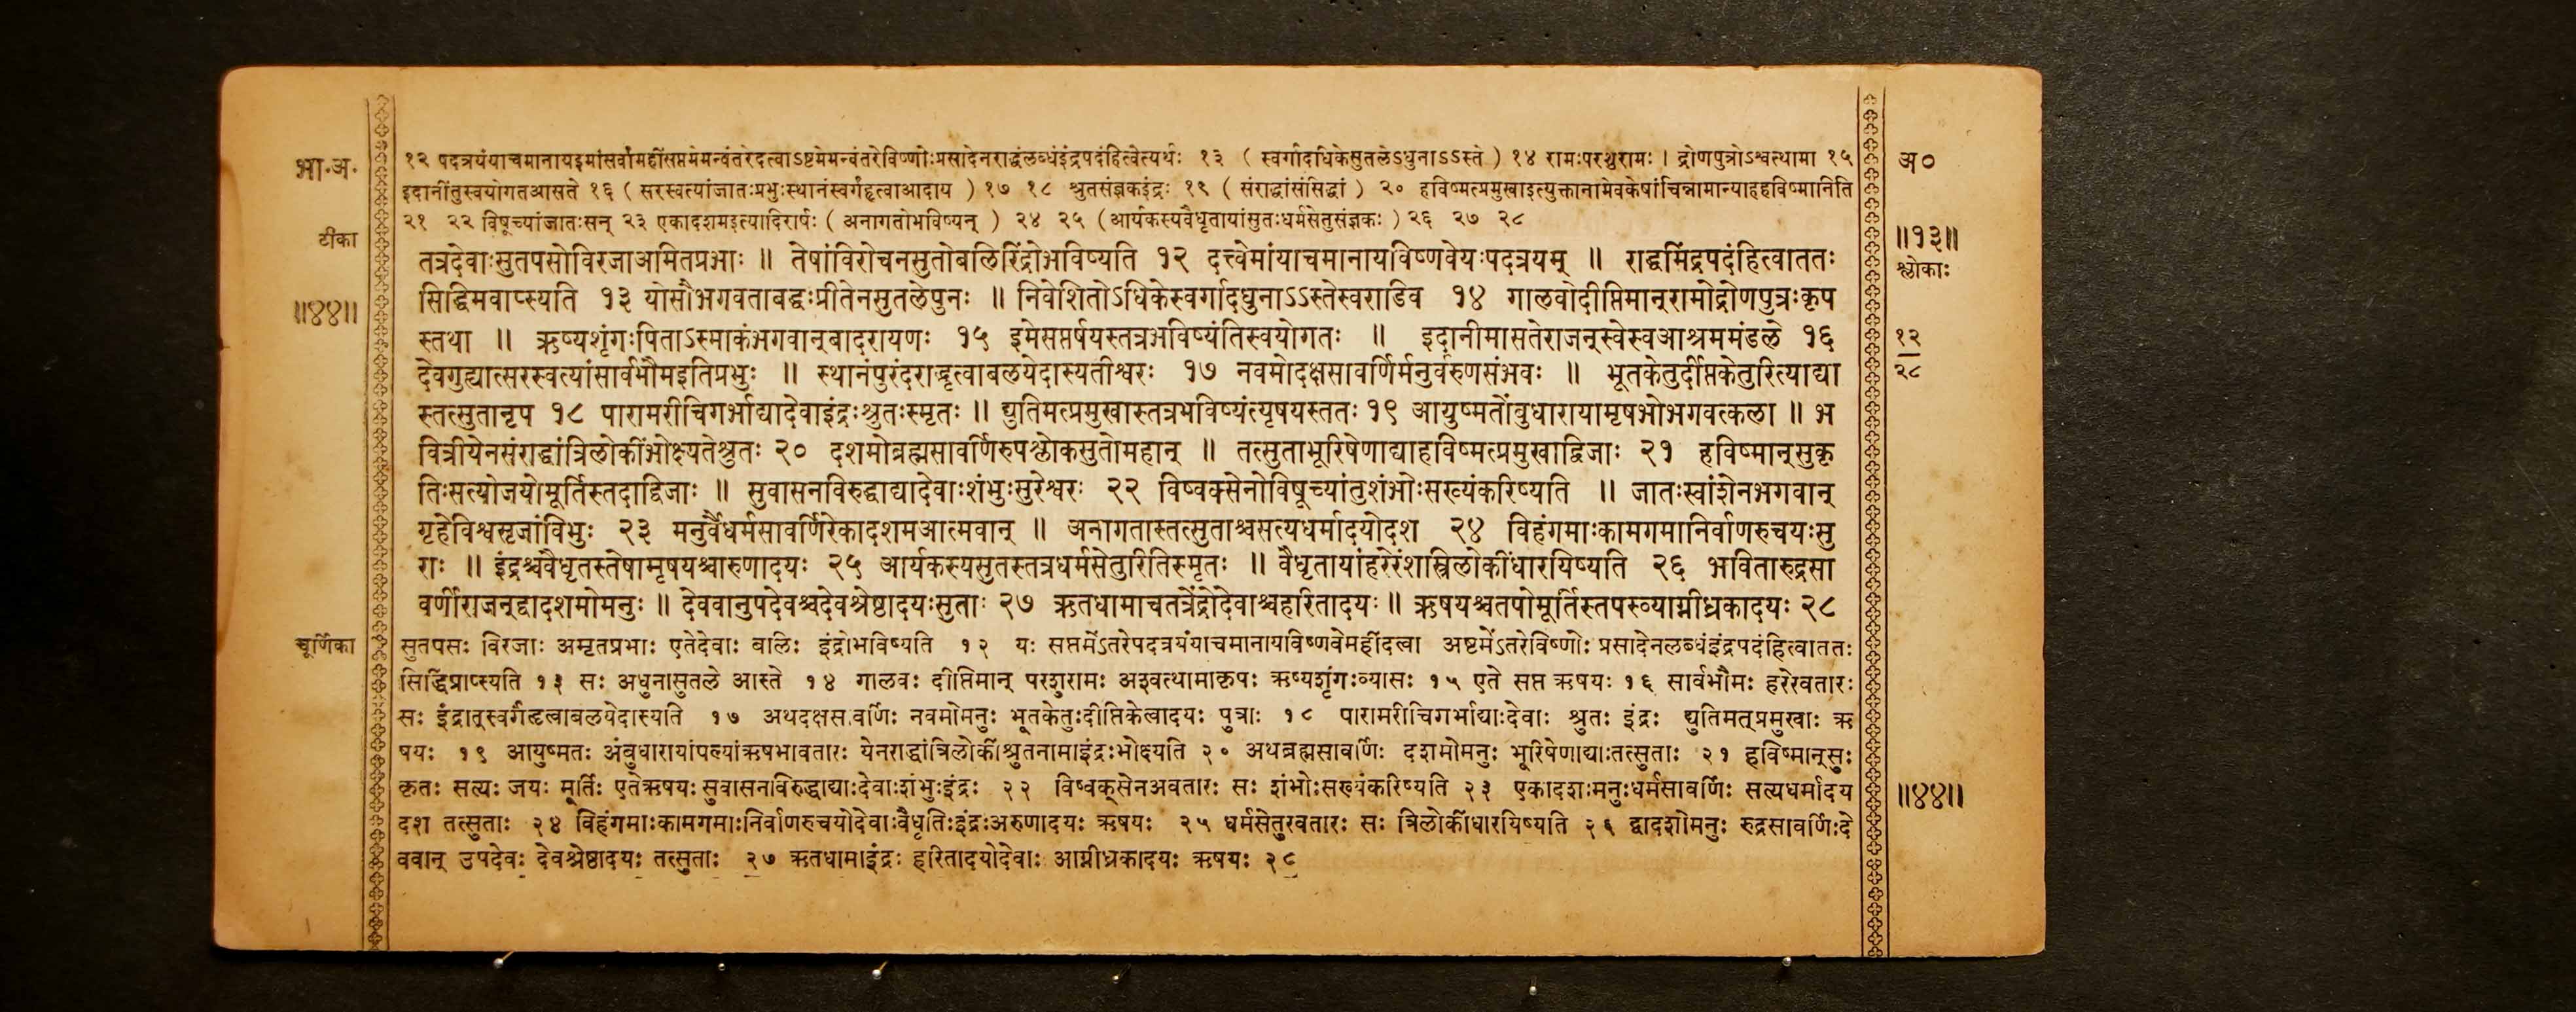 भा.अ.
टीका
॥४४॥
१२ पदत्रयंयाचमानायइमांसर्वांमहींसप्तमेमन्वंतरेदत्वाऽष्टमेमन्वंतरेविष्णोःप्रसादेनराद्धंलब्धंइंद्रपदंहित्वेत्यर्थः १३ ( स्वर्गादधिकेसुतलेऽधुनाऽऽस्ते ) १४ रामःपरशुरामः । द्रोणपुत्रोऽश्वत्थामा १५
इदानींतुस्वयोगतआसते १६ ( सरस्वत्यांजातःप्रभुःस्थानंस्वर्गंहृत्वाआदाय ) १७ १८ श्रुतसंज्ञकइंद्रः १९ ( संराद्धांसंसिद्धां ) २० हविष्मत्प्रमुखाइत्युक्तानामेवकेषांचिन्नामान्याहहविष्मानिति
२१ २२ विषूच्यांजातःसन् २३ एकादशमइत्यादिरार्षः ( अनागतोभविष्यन् ) २४ २५ (आर्यकस्यवैधृतायांसुतःधर्मसेतुसंज्ञकः ) २६ २७ २८
तत्रदेवाःसुतपसोविरजाअमितप्रभाः ॥ तेषांविरोचनसुतोबलिरिंद्रोभविष्यति १२ दत्त्वेमांयाचमानायविष्णवेयःपदत्रयम् ॥ राद्धमिंद्रपदंहित्वाततः
सिद्धिमवाप्स्यति १३ योसौभगवताबद्धःप्रीतेनसुतलेपुनः ॥ निवेशितोऽधिकेस्वर्गादधुनाऽऽस्तेस्वराडिव १४ गालवोदीप्तिमान्रामोद्रोणपुत्रःकृप
स्तथा ॥ ऋष्यशृंगःपिताऽस्माकंभगवान्बादरायणः १५ इमेसप्तर्षयस्तत्रभविष्यंतिस्वयोगतः ॥ इदानीमासतेराजन्स्वेस्वआश्रममंडले १६
देवगुह्यात्सरस्वत्यांसार्वभौमइतिप्रभुः ॥ स्थानंपुरंदराद्धृत्वाबलयेदास्यतीश्वरः १७ नवमोदक्षसावर्णिर्मनुर्वरुणसंभवः ॥ भूतकेतुर्दीप्तकेतुरित्याद्या
स्तत्सुतानृप १८ पारामरीचिगर्भाद्यादेवाइंद्रःश्रुतःस्मृतः ॥ द्युतिमत्प्रमुखास्तत्रभविष्यंत्यृषयस्ततः १९ आयुष्मतोंबुधारायामृषभोभगवत्कला ॥ भ
वित्रीयेनसंराद्धांत्रिलोकींभोक्ष्यतेश्रुतः २० दशमोब्रह्मसावर्णिरुपश्लोकसुतोमहान् ॥ तत्सुताभूरिषेणाद्याहविष्मत्प्रमुखाद्विजाः २१ हविष्मान्सुकृ
तिःसत्योजयोमूर्तिस्तदाद्विजाः ॥ सुवासनविरुद्धाद्यादेवाःशंभुःसुरेश्वरः २२ विष्वक्सेनोविषूच्यांतुशंभोःसख्यंकरिष्यति ॥ जातःस्वांशेनभगवान्
गृहेविश्वसृजांविभुः २३ मनुर्वैधर्मसावर्णिरेकादशमआत्मवान् ॥ अनागतास्तत्सुताश्चसत्यधर्मादयोदश २४ विहंगमाःकामगमानिर्वाणरुचयःसु
राः ॥ इंद्रश्चवैधृतस्तेषामृषयश्चारुणादयः २५ आर्यकस्यसुतस्तत्रधर्मसेतुरितिस्मृतः ॥ वैधृतायांहरेरंशस्त्रिलोकींधारयिष्यति २६ भवितारुद्रसा
वर्णीराजन्द्वादशमोमनुः ॥ देववानुपदेवश्चदेवश्रेष्ठादयःसुताः २७ ऋतधामाचतत्रेंद्रोदेवाश्चहरितादयः ॥ ऋषयश्चतपोमूर्तिस्तपस्व्याग्नीध्रकादयः २८
चूर्णिका
सुतपसः विरजाः अमृतप्रभाः एतेदेवाः बालिः इंद्रोभविष्यति १२ यः सप्तमेंऽतरेपदत्रयंयाचमानायविष्णवेमहींदत्वा अष्टमेंऽतरेविष्णोः प्रसादेनलब्धंइंद्रपदंहित्वाततः
सिद्धिंप्राप्स्यति १३ सः अधुनासुतले आस्ते १४ गालवः दीप्तिमान् परशुरामः अश्वत्थामाकृपः ऋष्यशृंगःव्यासः १५ एते सप्त ऋषयः १६ सार्वभौमः हरेरवतारः
सः इंद्रात्स्वर्गंहृत्वाबलयेदास्यति १७ अथदक्षसावर्णिः नवमोमनुः भूतकेतुःदीप्तिकेत्वादयः पुत्राः १८ पारामरीचिगर्भाद्याःदेवाः श्रुतः इंद्रः द्युतिमत्प्रमुखाः ऋ
षयः १९ आयुष्मतः अंबुधारायांपत्न्यांऋषभावतारः येनराद्धांत्रिलोकींश्रुतनामाइंद्रःभोक्ष्यति २० अथब्रह्मसावर्णिः दशमोमनुः भूरिषेणाद्याःतत्सुताः २१ हविष्मान्सुः
कृतः सत्यः जयः मूर्तिः एतेऋषयः सुवासनविरुद्धाद्याःदेवाःशंभुःइंद्रः २२ विष्वक्सेनअवतारः सः शंभोःसख्यंकरिष्यति २३ एकादशःमनुःधर्मसावर्णिः सत्यधर्मादय
दश तत्सुताः २४ विहंगमाःकामगमाःनिर्वाणरुचयोदेवाःवैधृतिःइंद्रःअरुणादयः ऋषयः २५ धर्मसेतुरवतारः सः त्रिलोकींधारयिष्यति २६ द्वादशोमनुः रुद्रसावर्णिःदे
ववान् उपदेवः देवश्रेष्ठादयः तत्सुताः २७ ऋतधामाइंद्रः हरितादयोदेवाः आग्नीध्रकादयः ऋषयः २८
अ०
॥१३॥
श्लोकाः
१२
२८
॥४४॥